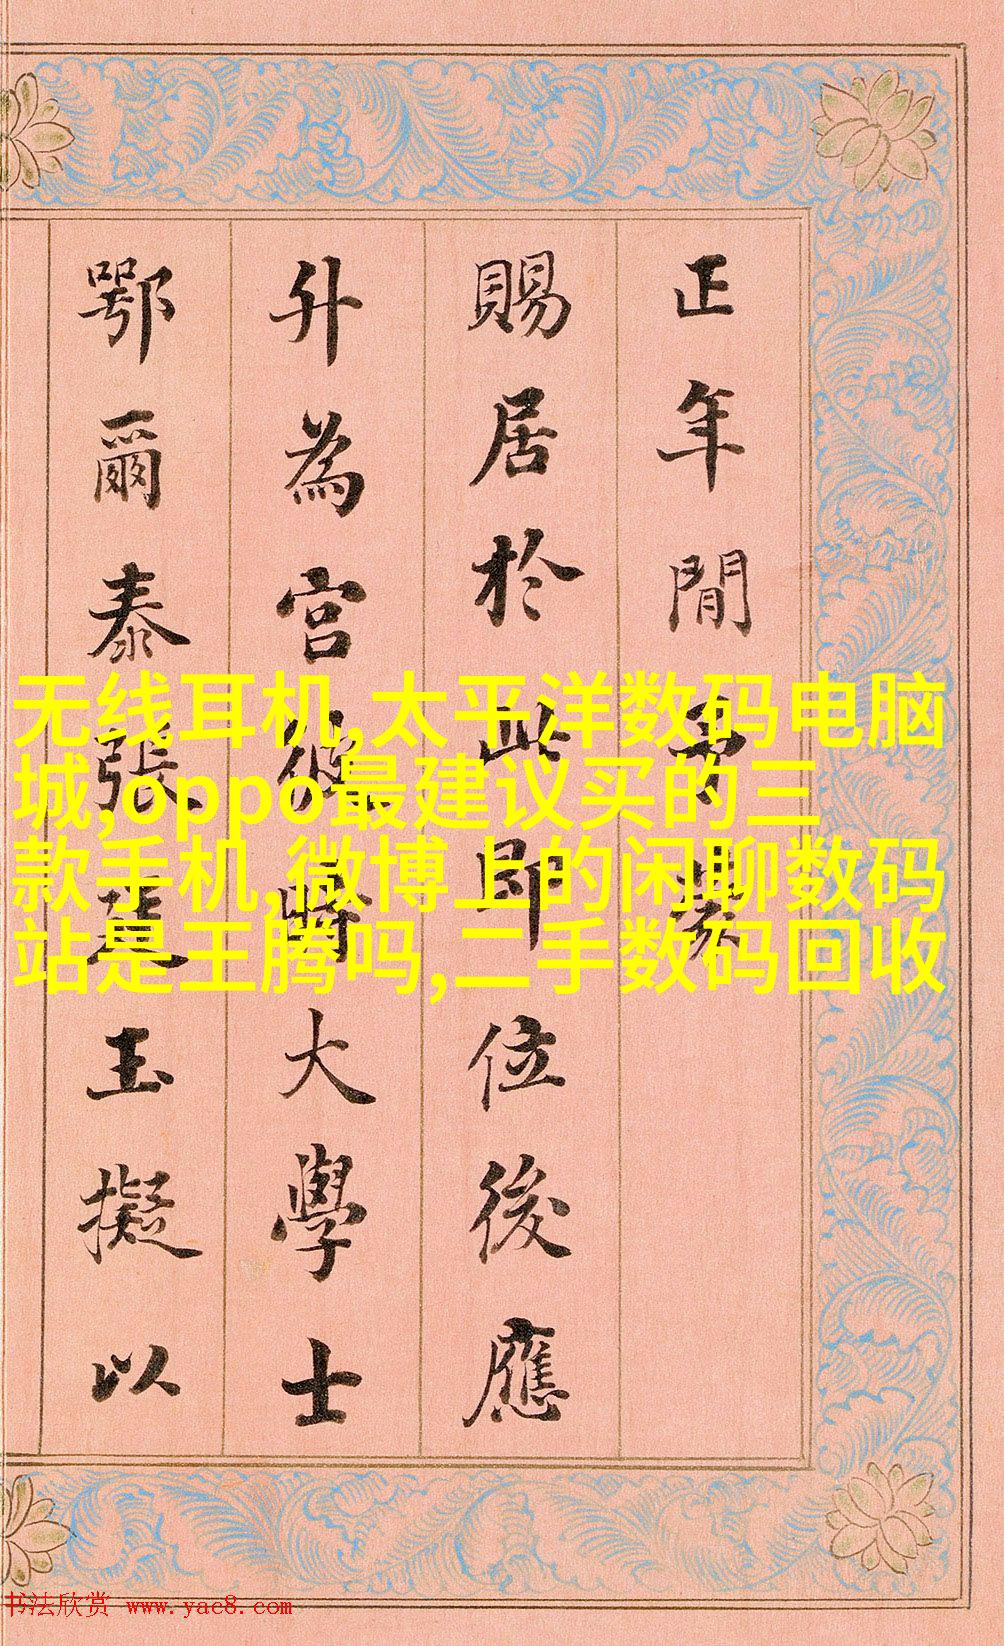 正年間
賜居於此即位後應
升為宮彼時大學士
鄂爾泰張廷玉擬以
无线耳机,太平洋数码电脑
城,oppo最建议买的三
款手机,微博上的闲聊数码
站是王腾吗,二手数码回收
书法欣赏 www.yac8.com